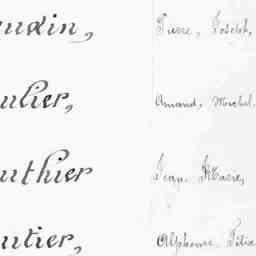 uxin, Pierre, Joseph,
ulier, Amand, Michel,
uthier Jean Marie,
utier, Alphonse, Félix